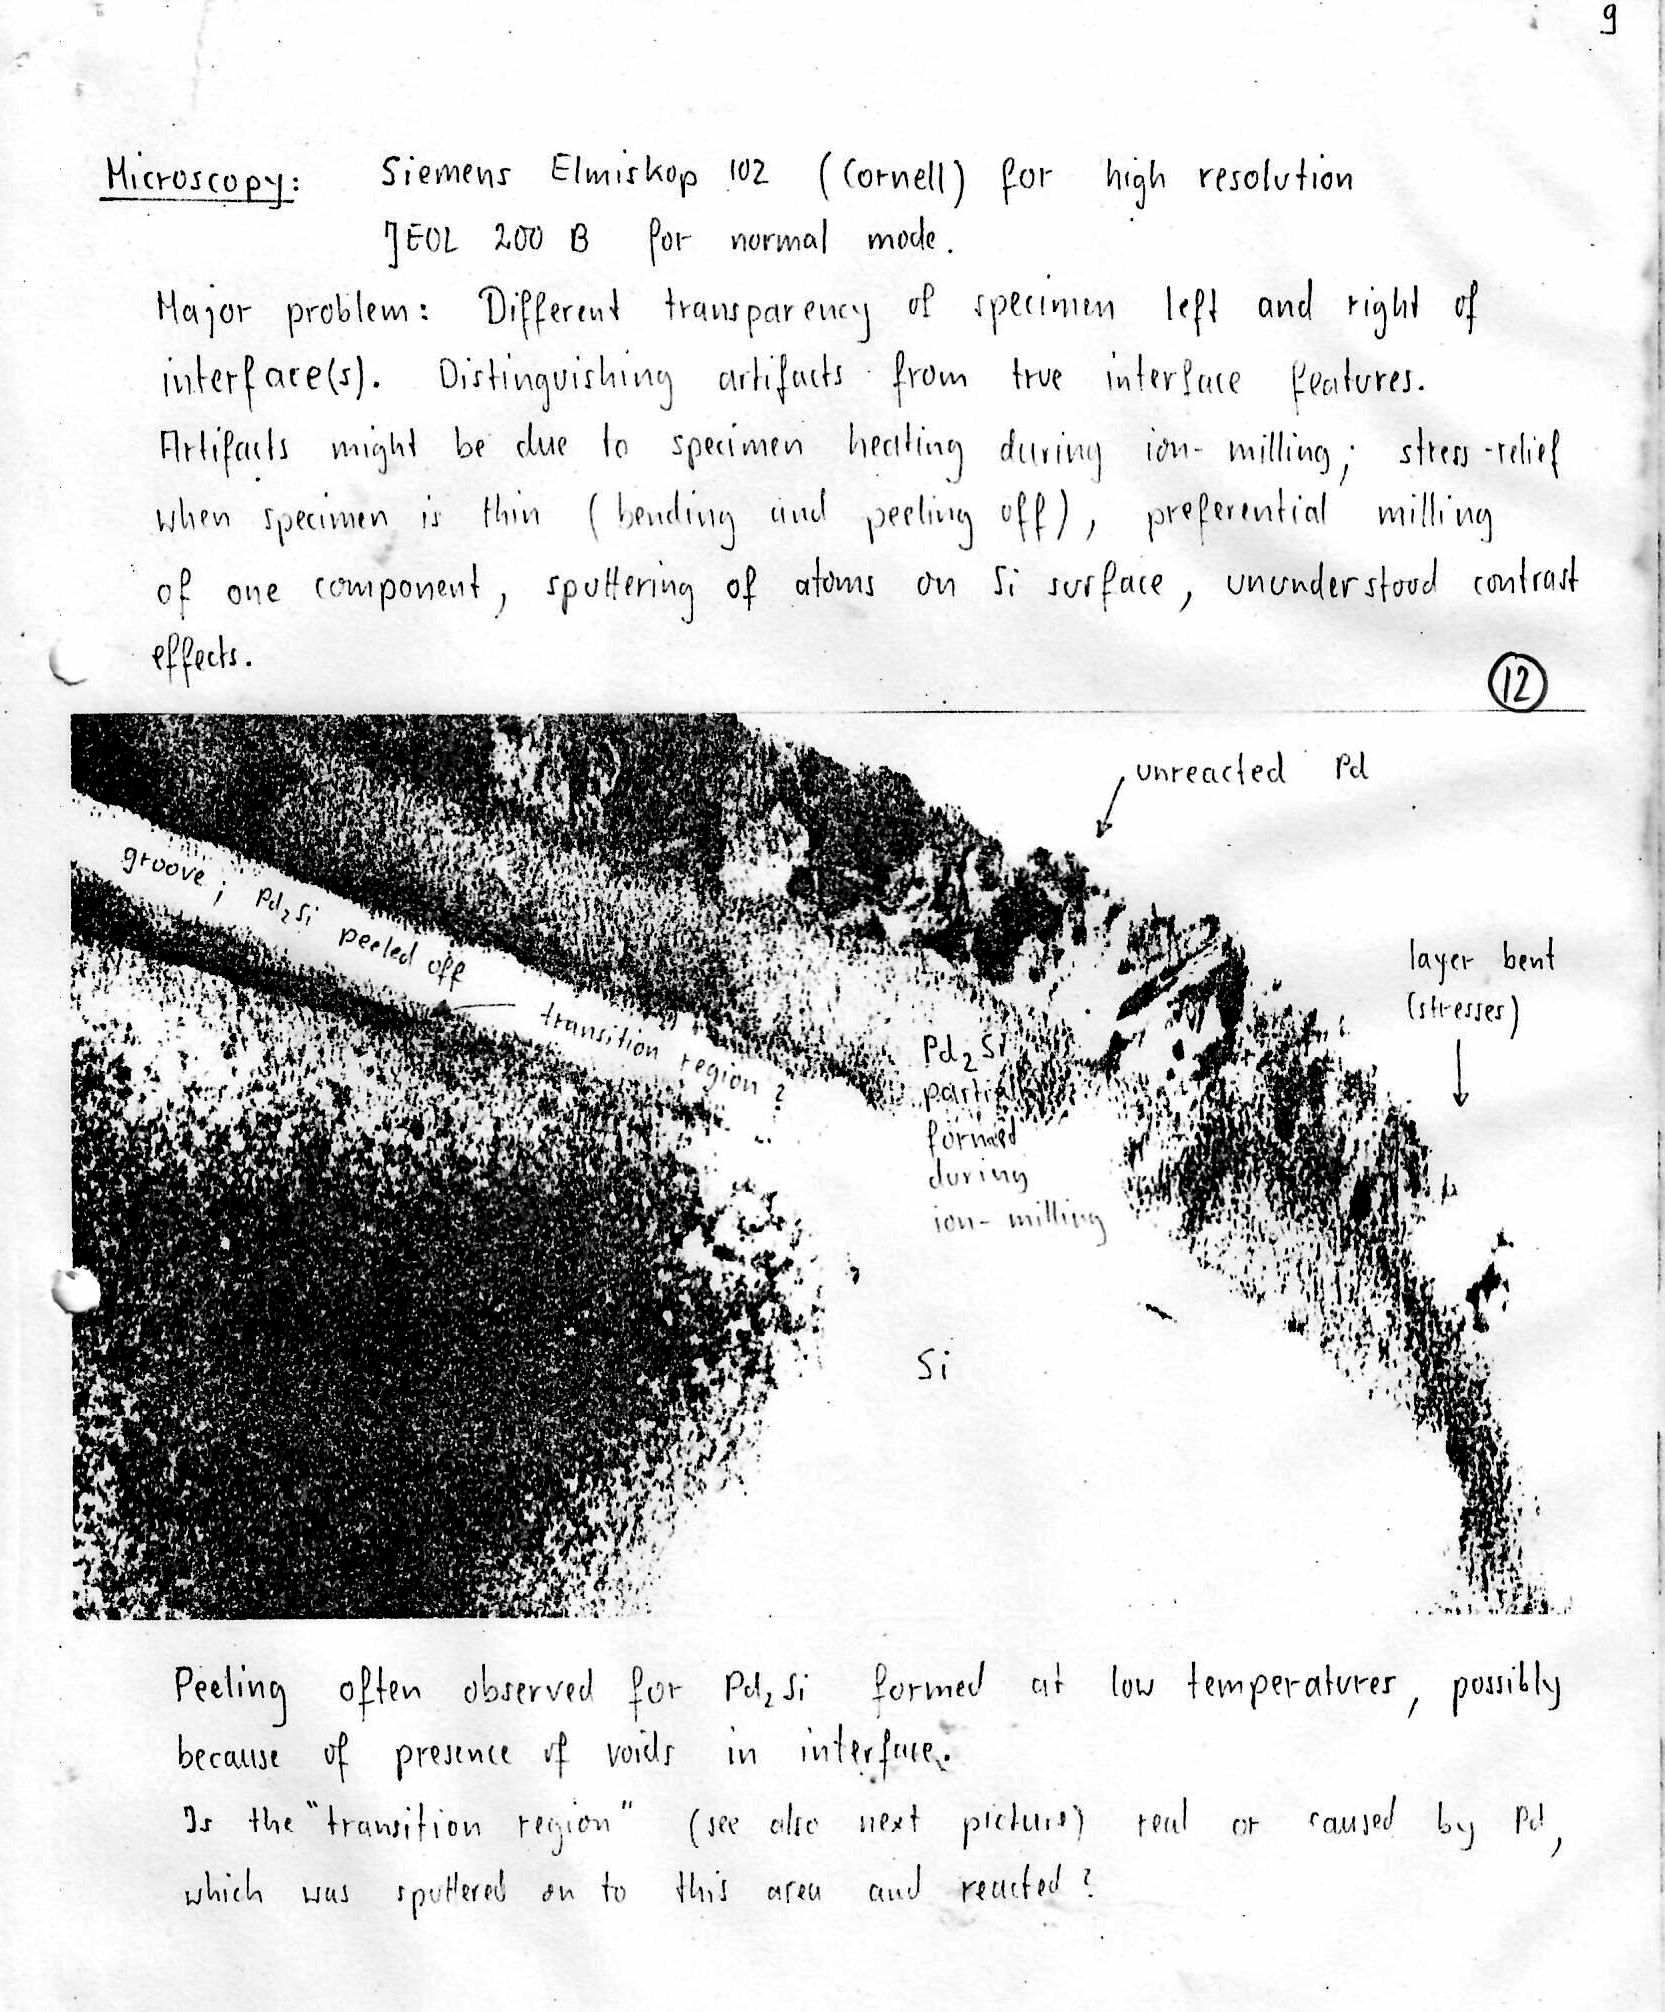 9
Microscopy: Siemens Elmiskop 102 (Cornell) for high resolution
JEOL 200 B for normal mode.
Major problem: Different transparency of specimen left and right of
interface(s). Distinguishing artifacts from true interface features.
Artifacts might be due to specimen heating during ion-milling; stress-relief
when specimen is thin (bending and peeling off), preferential milling
of one component, sputtering of atoms on Si surface, ununderstood contrast
effects.
12
unreacted Pd
groove; Pd₂Si peeled off
layer bent
(stresses)
transition region?
Pd₂Si
partial
formed
during
ion-milling
Si
Peeling often observed for Pd₂Si formed at low temperatures, possibly
because of presence of voids in interface.
Is the "transition region" (see also next picture) real or caused by Pd,
which was sputtered on to this area and reacted?